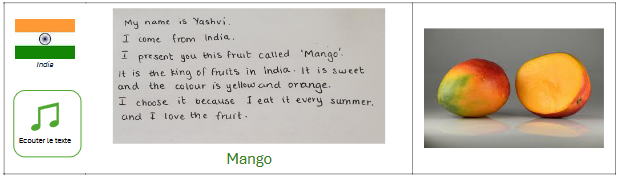 India
Ecouter le texte
My name is Yashvi.
I come from India.
I present you this fruit called 'Mango'.
it is the king of fruits in India. It is sweet
and the colour is yellow and orange.
I choose it because I eat it every summer.
and I love the fruit.
Mango